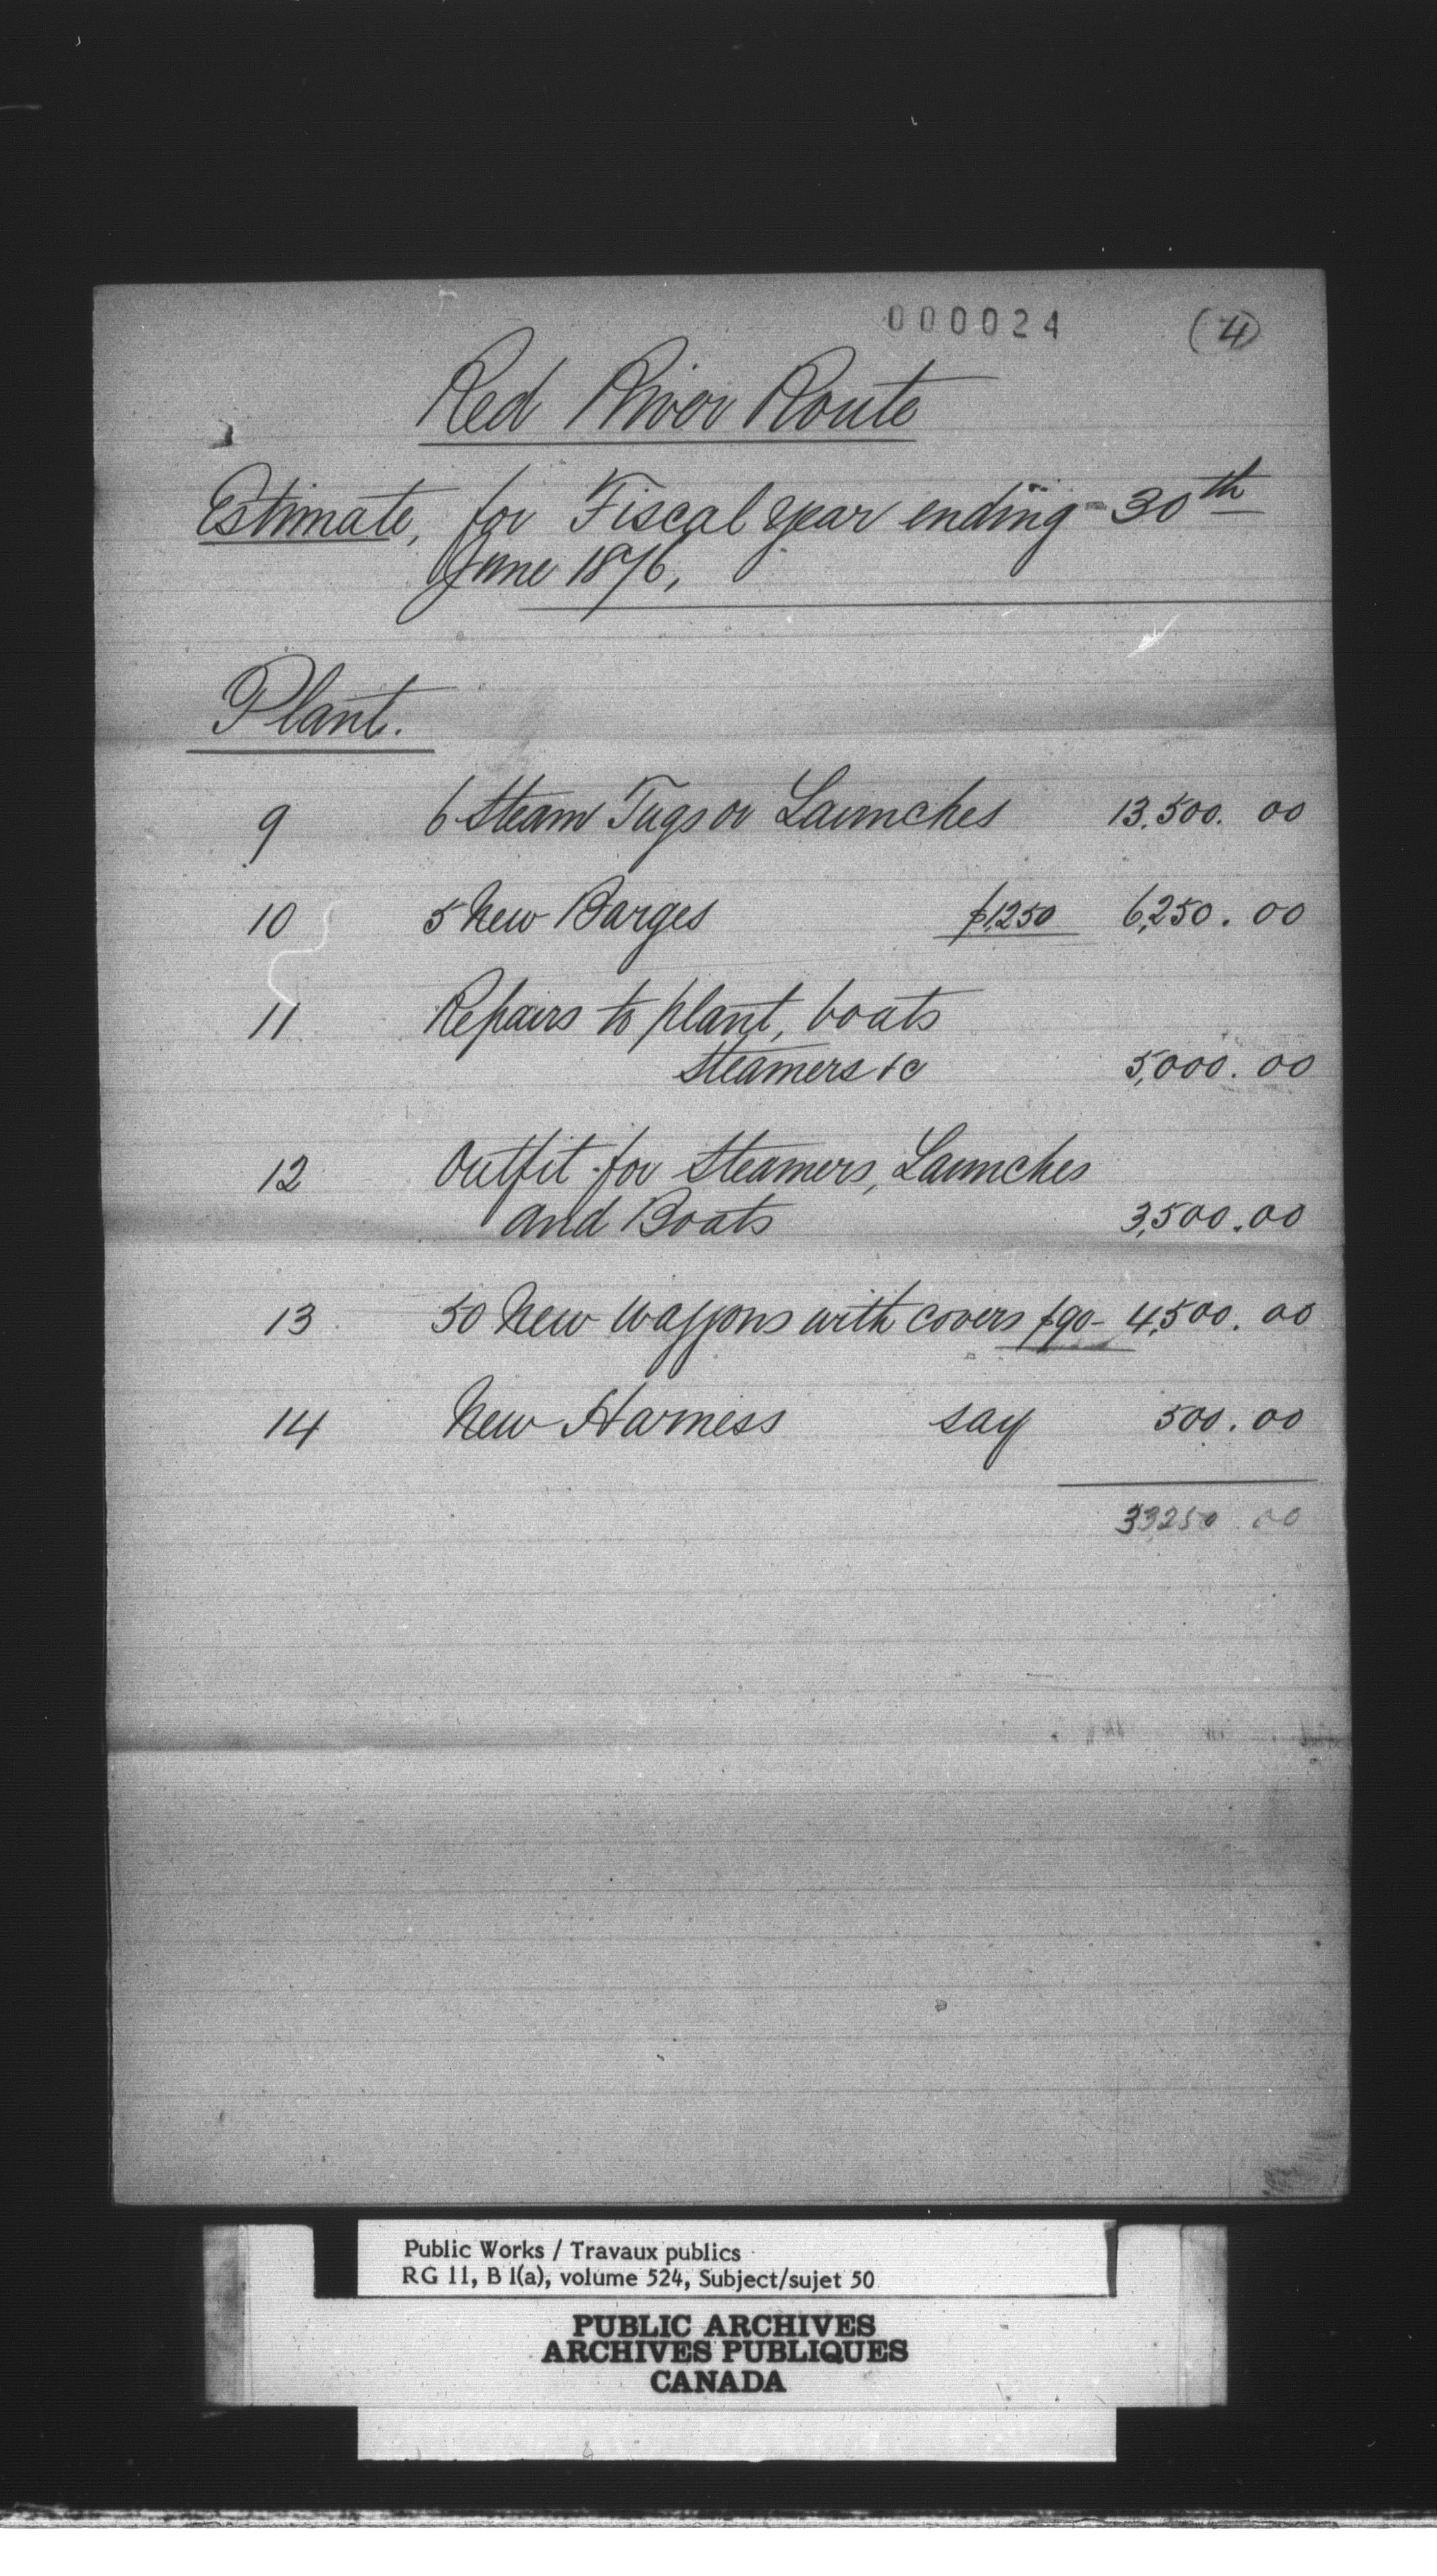 000024 (4)
Red River Route
Estimate, for Fiscal year ending 30th
June 1876,
Plant.
9 6 Steam Tugs or Launches 13,500. 00
10 5 New Barges $1,250 6,250. 00
11 Repairs to plant, boats
steamers &c 5,000. 00
12 Outfit for Steamers, Launches
and Boats 3,500.00
13 50 New Waggons with covers $90- 4,500. 00
14 New Harness say 500. 00
33,250 00
Public Works / Travaux publics
RG 11, B 1(a), volume 524, Subject/sujet 50
PUBLIC ARCHIVES
ARCHIVES PUBLIQUES
CANADA